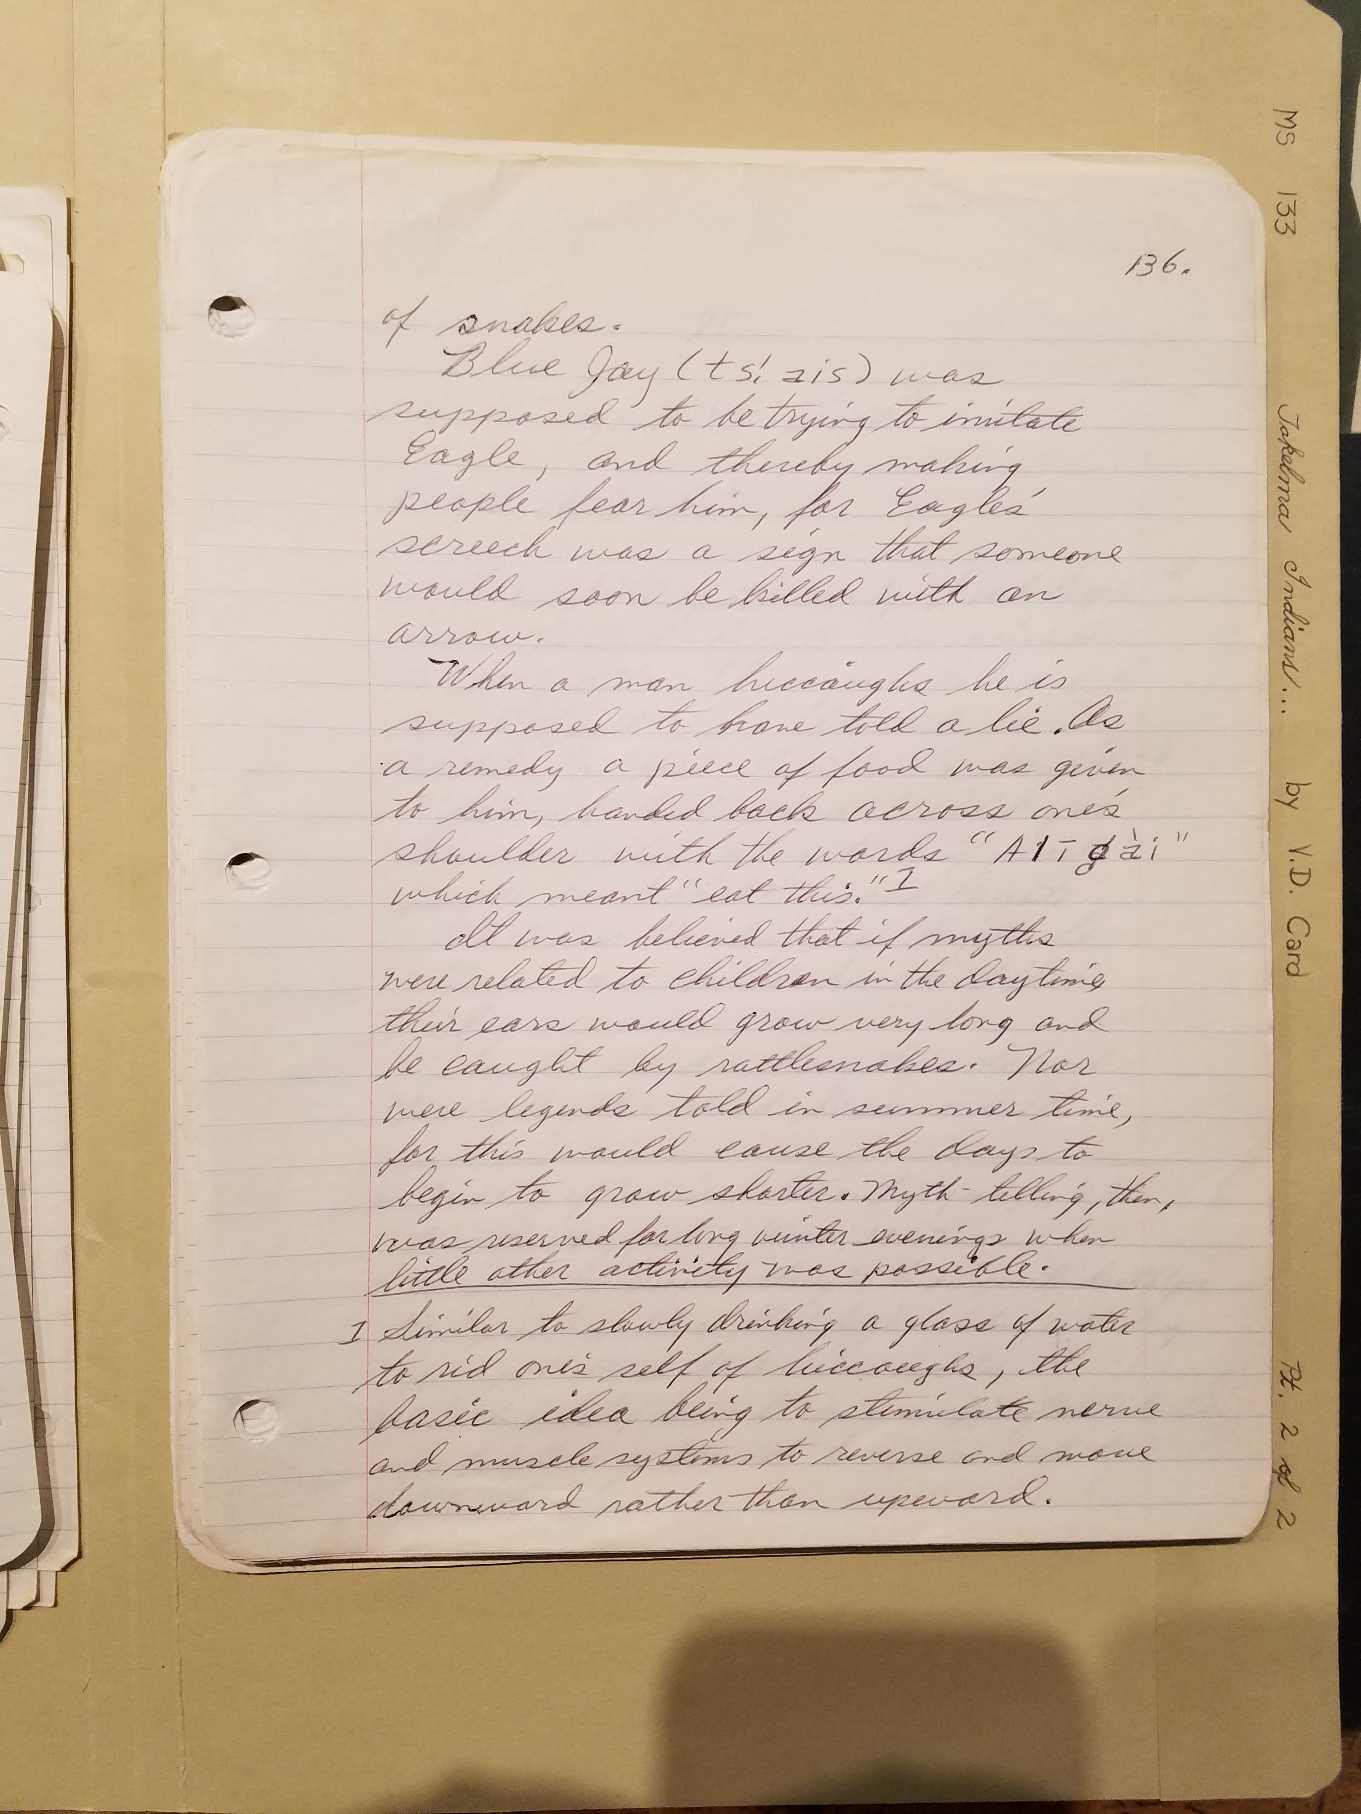 136.
of snakes.
Blue Jay (ts! ais) was
supposed to be trying to imitate
Eagle, and thereby making
people fear him, for Eagle's
screech was a sign that someone
would soon be killed with an
arrow.
When a man hiccaughs he is
supposed to have told a lie. As
a remedy a piece of food was given
to him, handed back across one's
shoulder with the words "
which meant "eat this." 1
It was believed that if myths
were related to children in the daytime
their ears would grow very long and
be caught by rattlesnakes. Nor
were legends told in summer time,
for this would cause the days to
begin to grow shorter. Myth-telling, then,
was reserved for long winter evenings when
little other activity was possible.
1 Similar to slowly drinking a glass of water
to rid one's self of hiccoughs, the
basic idea being to stimulate nerve
and muscle systems to reverse and move
downward rather than upward.
MS 133 Takelma Indians... by V.D. Card Pt. 2 of 2